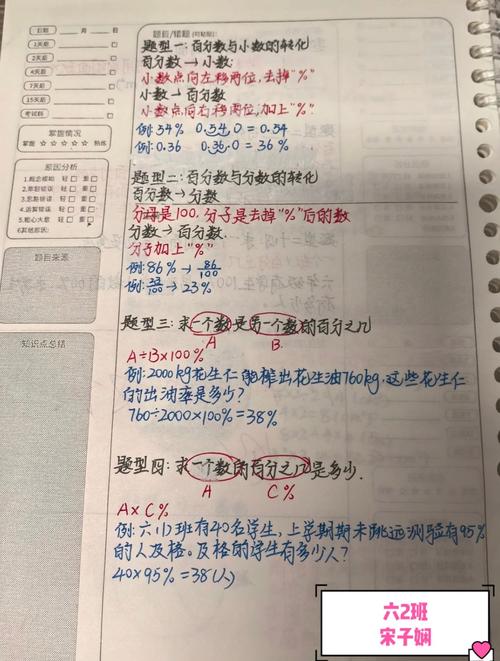 日期 月 日
1天后
2天后
4天后
7天后
15天后
考试前
掌握情况
掌握 ☆ ☆ ☆ ☆ ☆ 熟练
原因分析
1.概念模糊 轻 □ 重 □
2.审题错误 轻 □ 重 □
3.思路错误 轻 □ 重 □
4.运算错误 轻 □ 重 □
5.粗心大意 轻 □ 重 □
6.其他原因:
题目来源
知识点总结
题目/错题(可粘贴):
题型一:百分数与小数的转化
百分数→小数:
小数点向左移两位,去掉“%”
小数→百分数
小数点向右移两位,加上“%”
例:54% 0.54.0 = 0.54
例:0.36 0.36.0 = 36%
题型二:百分数与分数的转化
百分数→分数
分母是100,分子是去掉“%”后的数
分数→百分数
分子加上“%”
例:86%→86/100
例:23/100→23%
题型三:求一个数是另一个数的百分之几
A B
A÷B×100%
例:2000kg花生仁能榨出花生油760kg,这些花生仁
的出油率是多少?
760÷2000×100%=38%
题型四:求一个数的百分之几是多少.
A C%
A×C%
例:六(1)班有40名学生,上学期期末跳远测验有95%
的人及格。及格的学生有多少人?
40×95%=38(人)
六2班
宋子娴